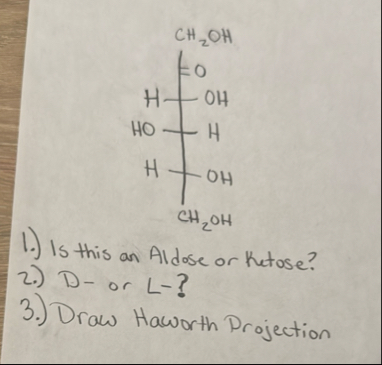 CH₂OH
=O
H OH
HO H
H OH
CH₂OH
1.) Is this an Aldose or Ketose?
2.) D- or L-?
3.) Draw Haworth Projection